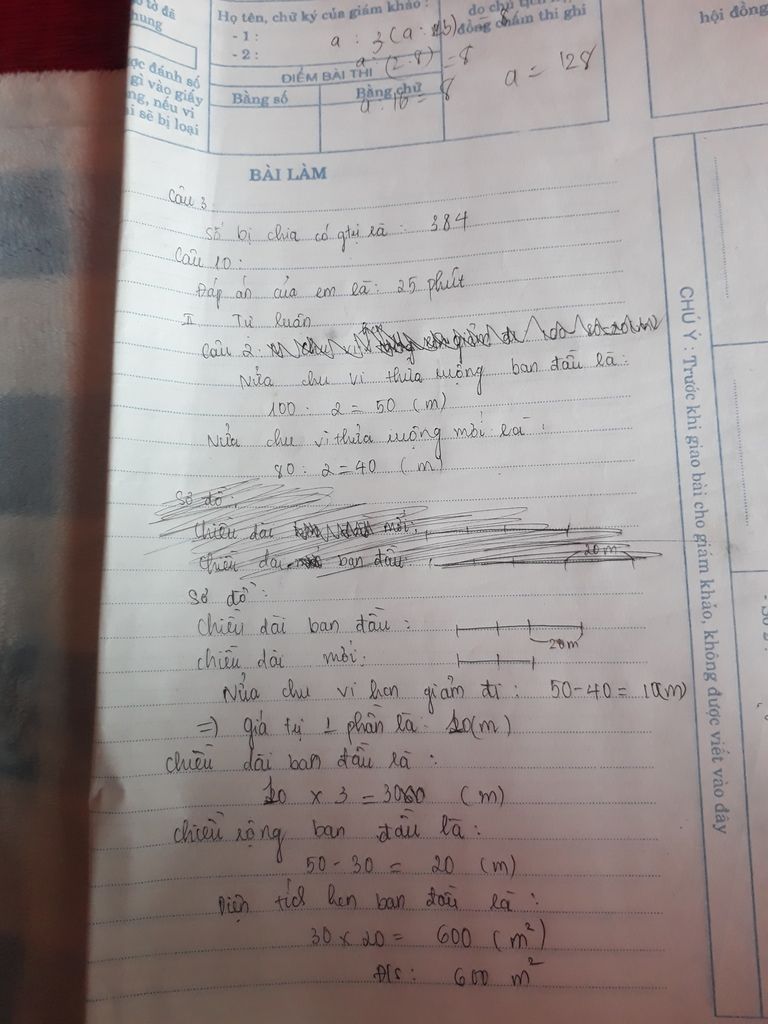 Họ tên, chữ ký của giám khảo :
- 1 :
- 2 :
ĐIỂM BÀI THI
Bằng số
Bằng chữ
đồng chấm thi ghi
hội đồng
ợc đánh số
gì vào giấy
ng, nếu vi
i sẽ bị loại
a : (2·8) = 8
a : 16 = 8
a = 128
BÀI LÀM
Câu 3
Số bị chia có gtrị là : 384
Câu 10 :
Đáp án của em là : 25 phút
II Tự luân
Câu 2 :
Nửa chu vi thửa ruộng ban đầu là :
100 : 2 = 50 (m)
Nửa chu vi thửa ruộng mới là :
80 : 2 = 40 (m)
Sơ đồ :
Chiều dài mới :
Chiều dài ban đầu
20 m
Sơ đồ :
Chiều dài ban đầu :
20 m
Chiều dài mới :
Nửa chu vi hcn giảm đi : 50 - 40 = 10(m)
=) giá tự 1 phần là : 10(m)
Chiều dài ban đầu là :
10 x 3 = 30 (m)
Chiều rộng ban đầu là :
50 - 30 = 20 (m)
Diện tích hcn ban đầu là :
30 x 20 = 600 (m²)
Đ/s : 600 m²
CHÚ Ý : Trước khi giao bài cho giám khảo, không được viết vào đây